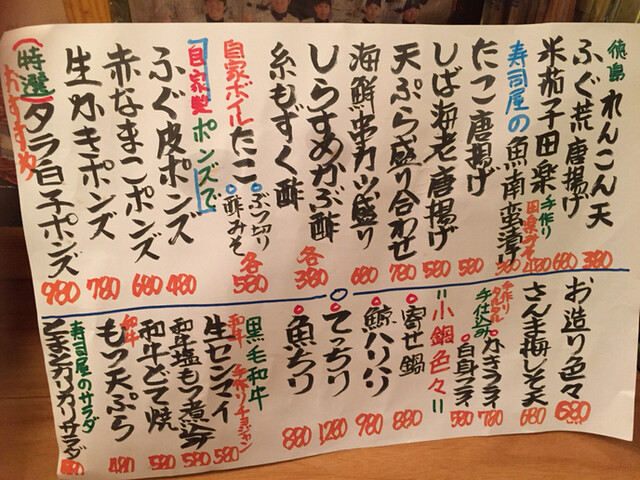 徳島 れんこん天 380
ふぐ荒唐揚げ 680
米茄子田楽 手作り 田楽みそ 480
寿司屋の魚南蛮漬け 380
たこ唐揚げ 580
しば海老唐揚げ 580
天ぷら盛り合わせ 780
海鮮串カツ盛り 680
しらすめかぶ酢
糸もずく酢
各380
自家ボイルたこ ぶつ切り 酢みそ 各580
自家製ポンズで
ふぐ皮ポンズ 480
赤なまこポンズ 680
生かきポンズ 780
(特選)おすすめ タラ白子ポンズ 980
お造り色々 680
さんま梅しそ天 580
手作りタルタル
手仕込み かきフライ 780
白身フライ 580
"小鍋色々"
寄せ鍋 880
鯨ハリハリ 980
てっちり 1280
魚ちり 880
黒毛和牛
和牛 手作りチョジャン
生センマイ 580
和牛塩もつ煮込み 580
和牛どて焼 580
和牛 もつ天ぷら 480
寿司屋のサラダ